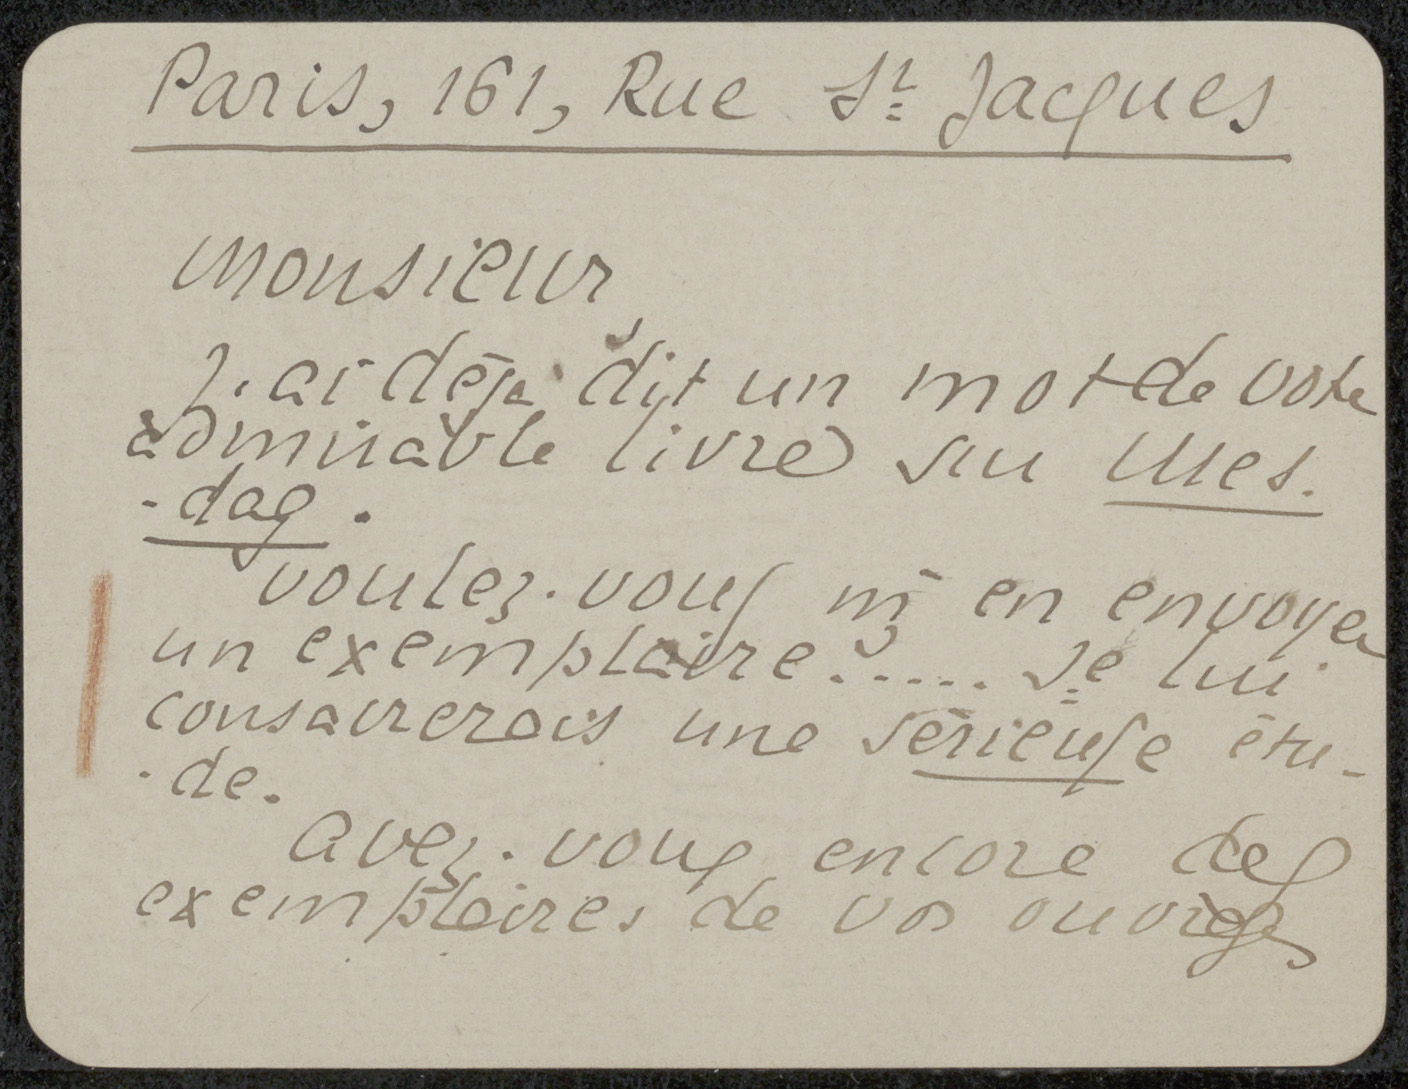 Paris, 161, Rue St Jacques
Monsieur,
J'ai déja dit un mot de votre
admirable livre sur Mes-
-dag.
voulez-vous m'en envoyer
un exemplaire?..... Je lui
consacrerais une sérieuse étu-
-de.
avez-vous encore des
exemplaires de vos ouvrages